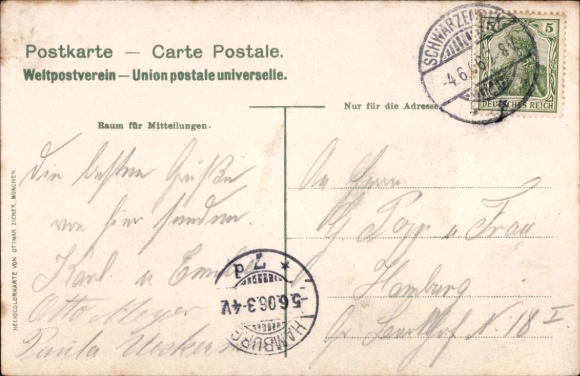 Postkarte — Carte Postale.
Weltpostverein — Union postale universelle.
SCHWARZENBEK
-4.6.06
5
DEUTSCHES REICH
Nur für die Adresse
Raum für Mitteilungen.
Die besten Grüße
von hier senden
Karl u
Otto Meyer
Paula
HELIOCOLORKARTE VON OTTMAR ZIEHER, MÜNCHEN.
HAMBURG
5.6.06.3-4V
An Herrn
u Frau
Hamburg
Gr N. 18 I